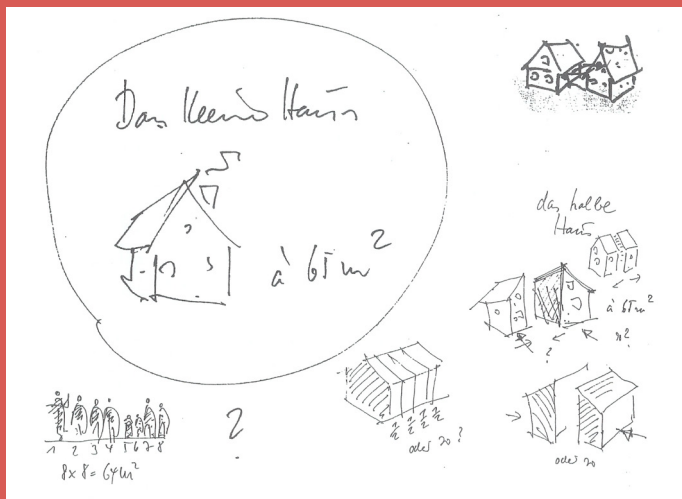 Das kleine Haus
à 65 m²
das halbe
Haus
à 65 m²
n?
?
1 2 3 4 5 6 7 8
8 x 8 = 64 m²
?
½ ½ ½ ½
oder so ?
oder so